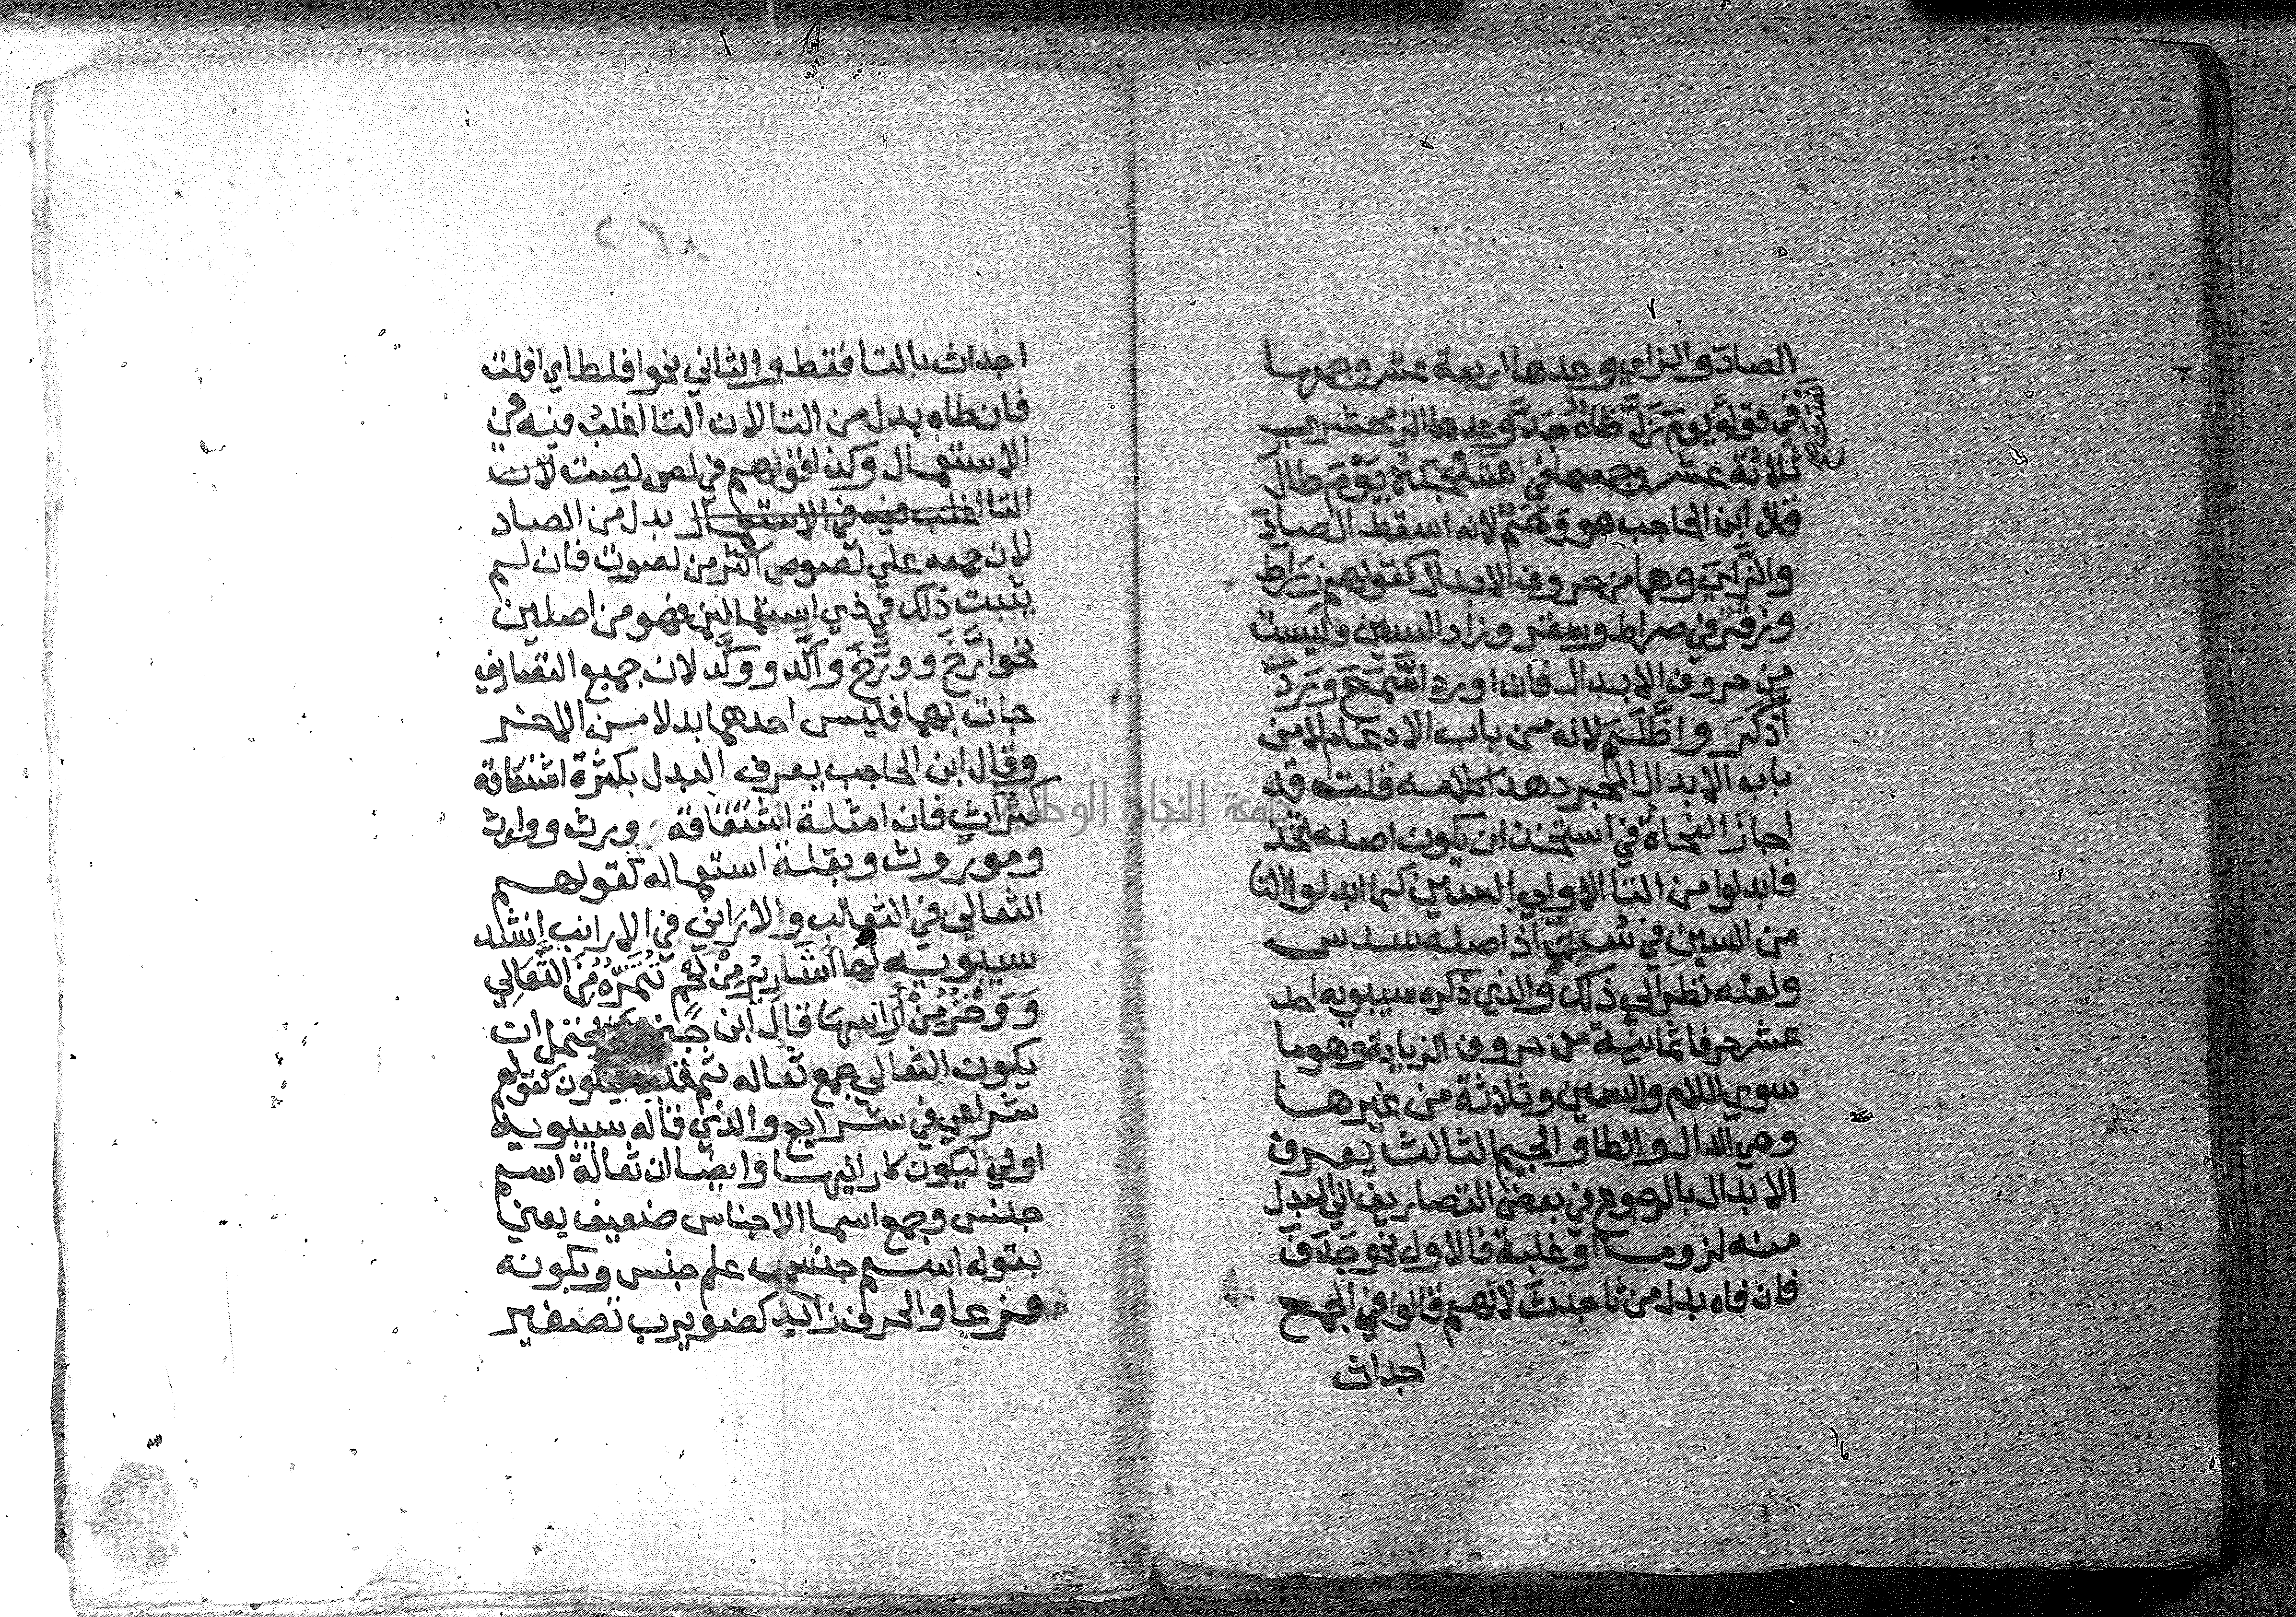 الصاد والزاي وعدها اربعة عشر وجمعها
في قوله انصت يوم زل طاه جد وعدها الزمخشري
ثلاثة عشر وجمعها في استنجده يوم طال
قال ابن الحاجب هو وهم لانه اسقط الصاد
والزاي وهما من حروف الابدال كقولهم زراط
وزقر في صراط وسقر وزاد السين وليست
من حروف الابدال فان اورد اسمع ورد
اذكر واظلم لانه من باب الادغام لا من
باب الابدال المجرد هذا كلامه قلت قد
اجاز النحاة في استخذ ان يكون اصله اتخذ
فابدلوا من التا الاولي السين كما ابدلوا التا
من السين في ست اذ اصله سدس
ولعله نظر الي ذلك والذي ذكره سيبويه احد
عشر حرفا ثمانية من حروف الزيادة وهو ما
سوي اللام والسين وثلاثة من غيرها
وهي الدال والطا والجيم الثالث يعرف
الابدال بالرجوع في بعض التصاريف الي المبدل
منه لزوما او غلبة فالاول نحو جدف
فان فاه بدل من ثا جدث لانهم قالوا في الجمع
اجداث
٢٦٨
اجداث بالثا فقط والثاني نحو افلط اي افلت
فان طاه بدل من التا لان التا اغلب فيه في
الاستعمال وكذا قولهم في لص لصت لان
التا اغلب فيه في الاستعمال بدل من الصاد
لان جمعه علي لصوص اكثر من لصوت فان لم
يثبت ذلك في ذي استعمالين فهو من اصلين
نحو ارخ وورخ واكد ووكد لان جميع التصاريف
جات بهما فليس احدهما بدلا من الاخر
وقال ابن الحاجب يعرف البدل بكثرة اشتقاقه
كتراث فان امثلة اشتقاقه ورث ووارث
وموروث وبقلة استعماله كقولهم
الثعالي في الثعالب والاراني في الارانب انشد
سيبويه لها اشارير من لحم تتمره من الثعالي
ووخز من ارانيها قال ابن جني يحتمل ان
يكون الثعالي جمع ثعاله ثم قلب فيكون كقولهم
شراعي في شرايع والذي قاله سيبويه
اولي ليكون كارانيها وايضا ان ثعالة اسم
جنس وجمع اسما الاجناس ضعيف يعني
بقوله اسم جنس علم جنس وبكونه
فرعا والحرف زايد كضويرب تصغير